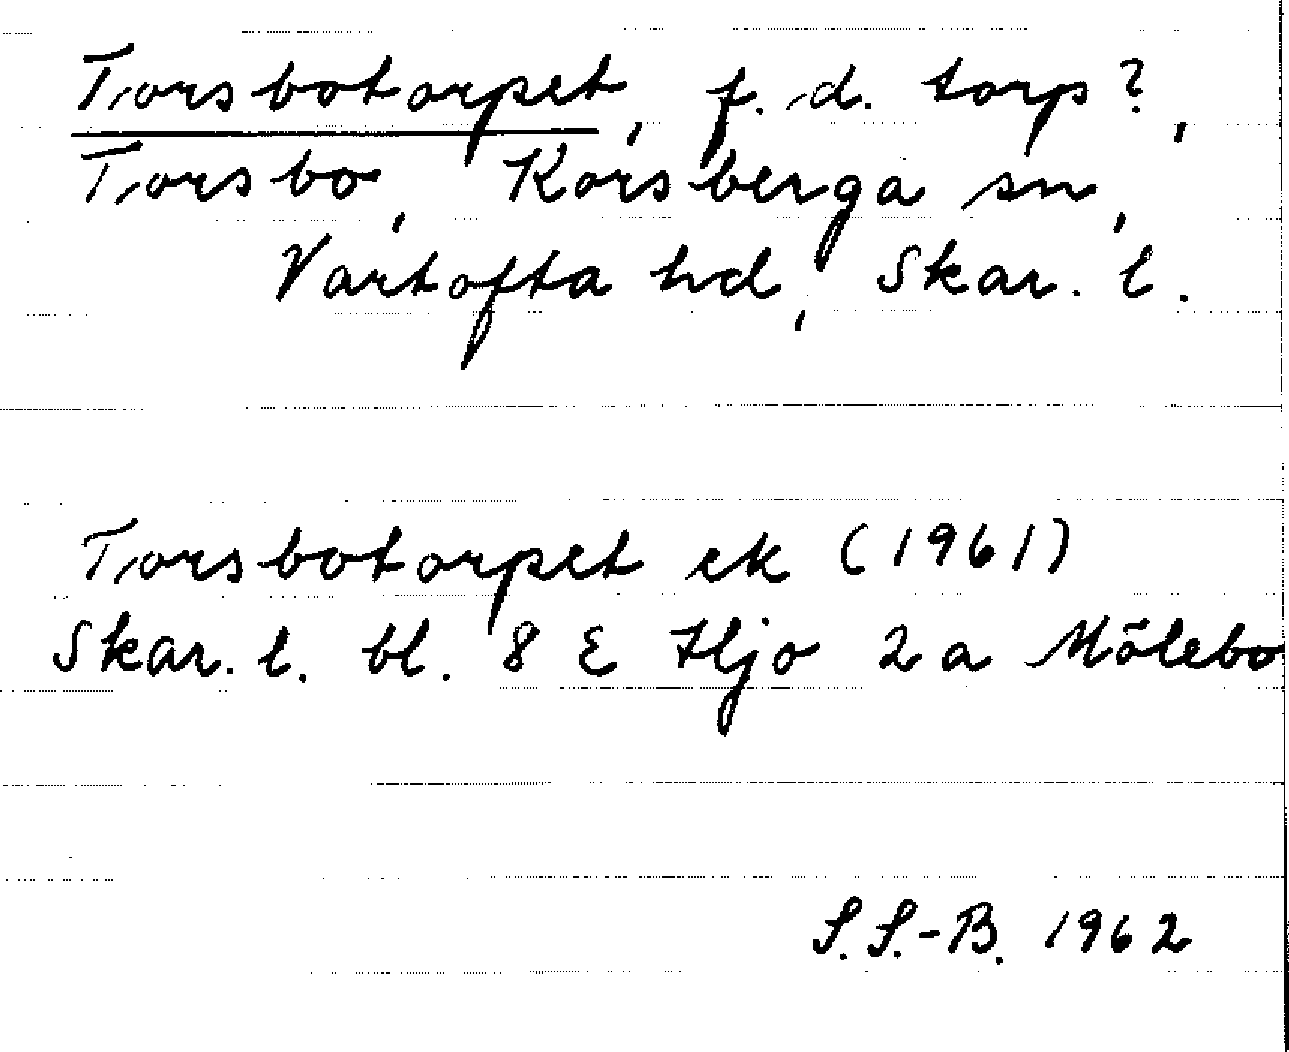 Torsbotorpet, f.d. torp?,
Torsbo, Korsberga sn,
Vartofta hd, Skar. l.
Torsbotorpet ek (1961)
Skar. l. bl. 8 E Hjo 2a Mölebo
S.S.-B. 1962